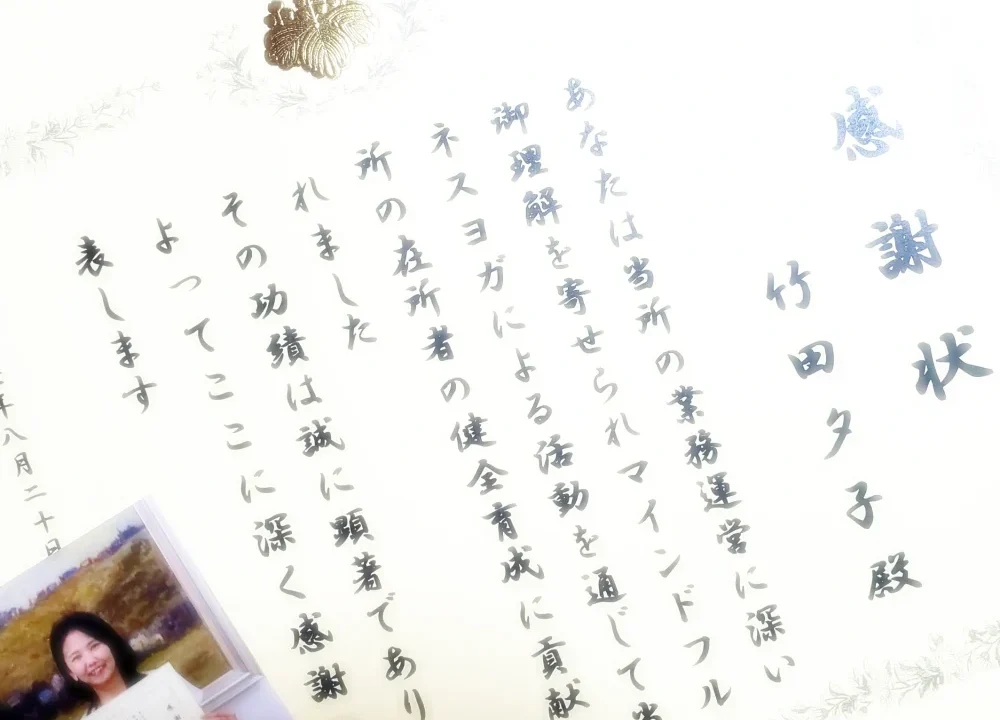 感謝状
竹田夕子殿
あなたは当所の業務運営に深い
御理解を寄せられマインドフル
ネスヨガによる活動を通じて当
所の在所者の健全育成に貢献
れました
その功績は誠に顕著であり
よってここに深く感謝
表します
年八月二十日